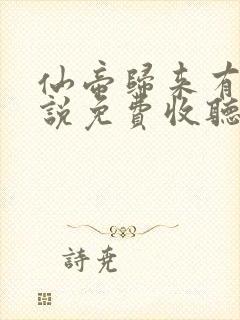 仙帝歸來有
說免費收聽
詩堯